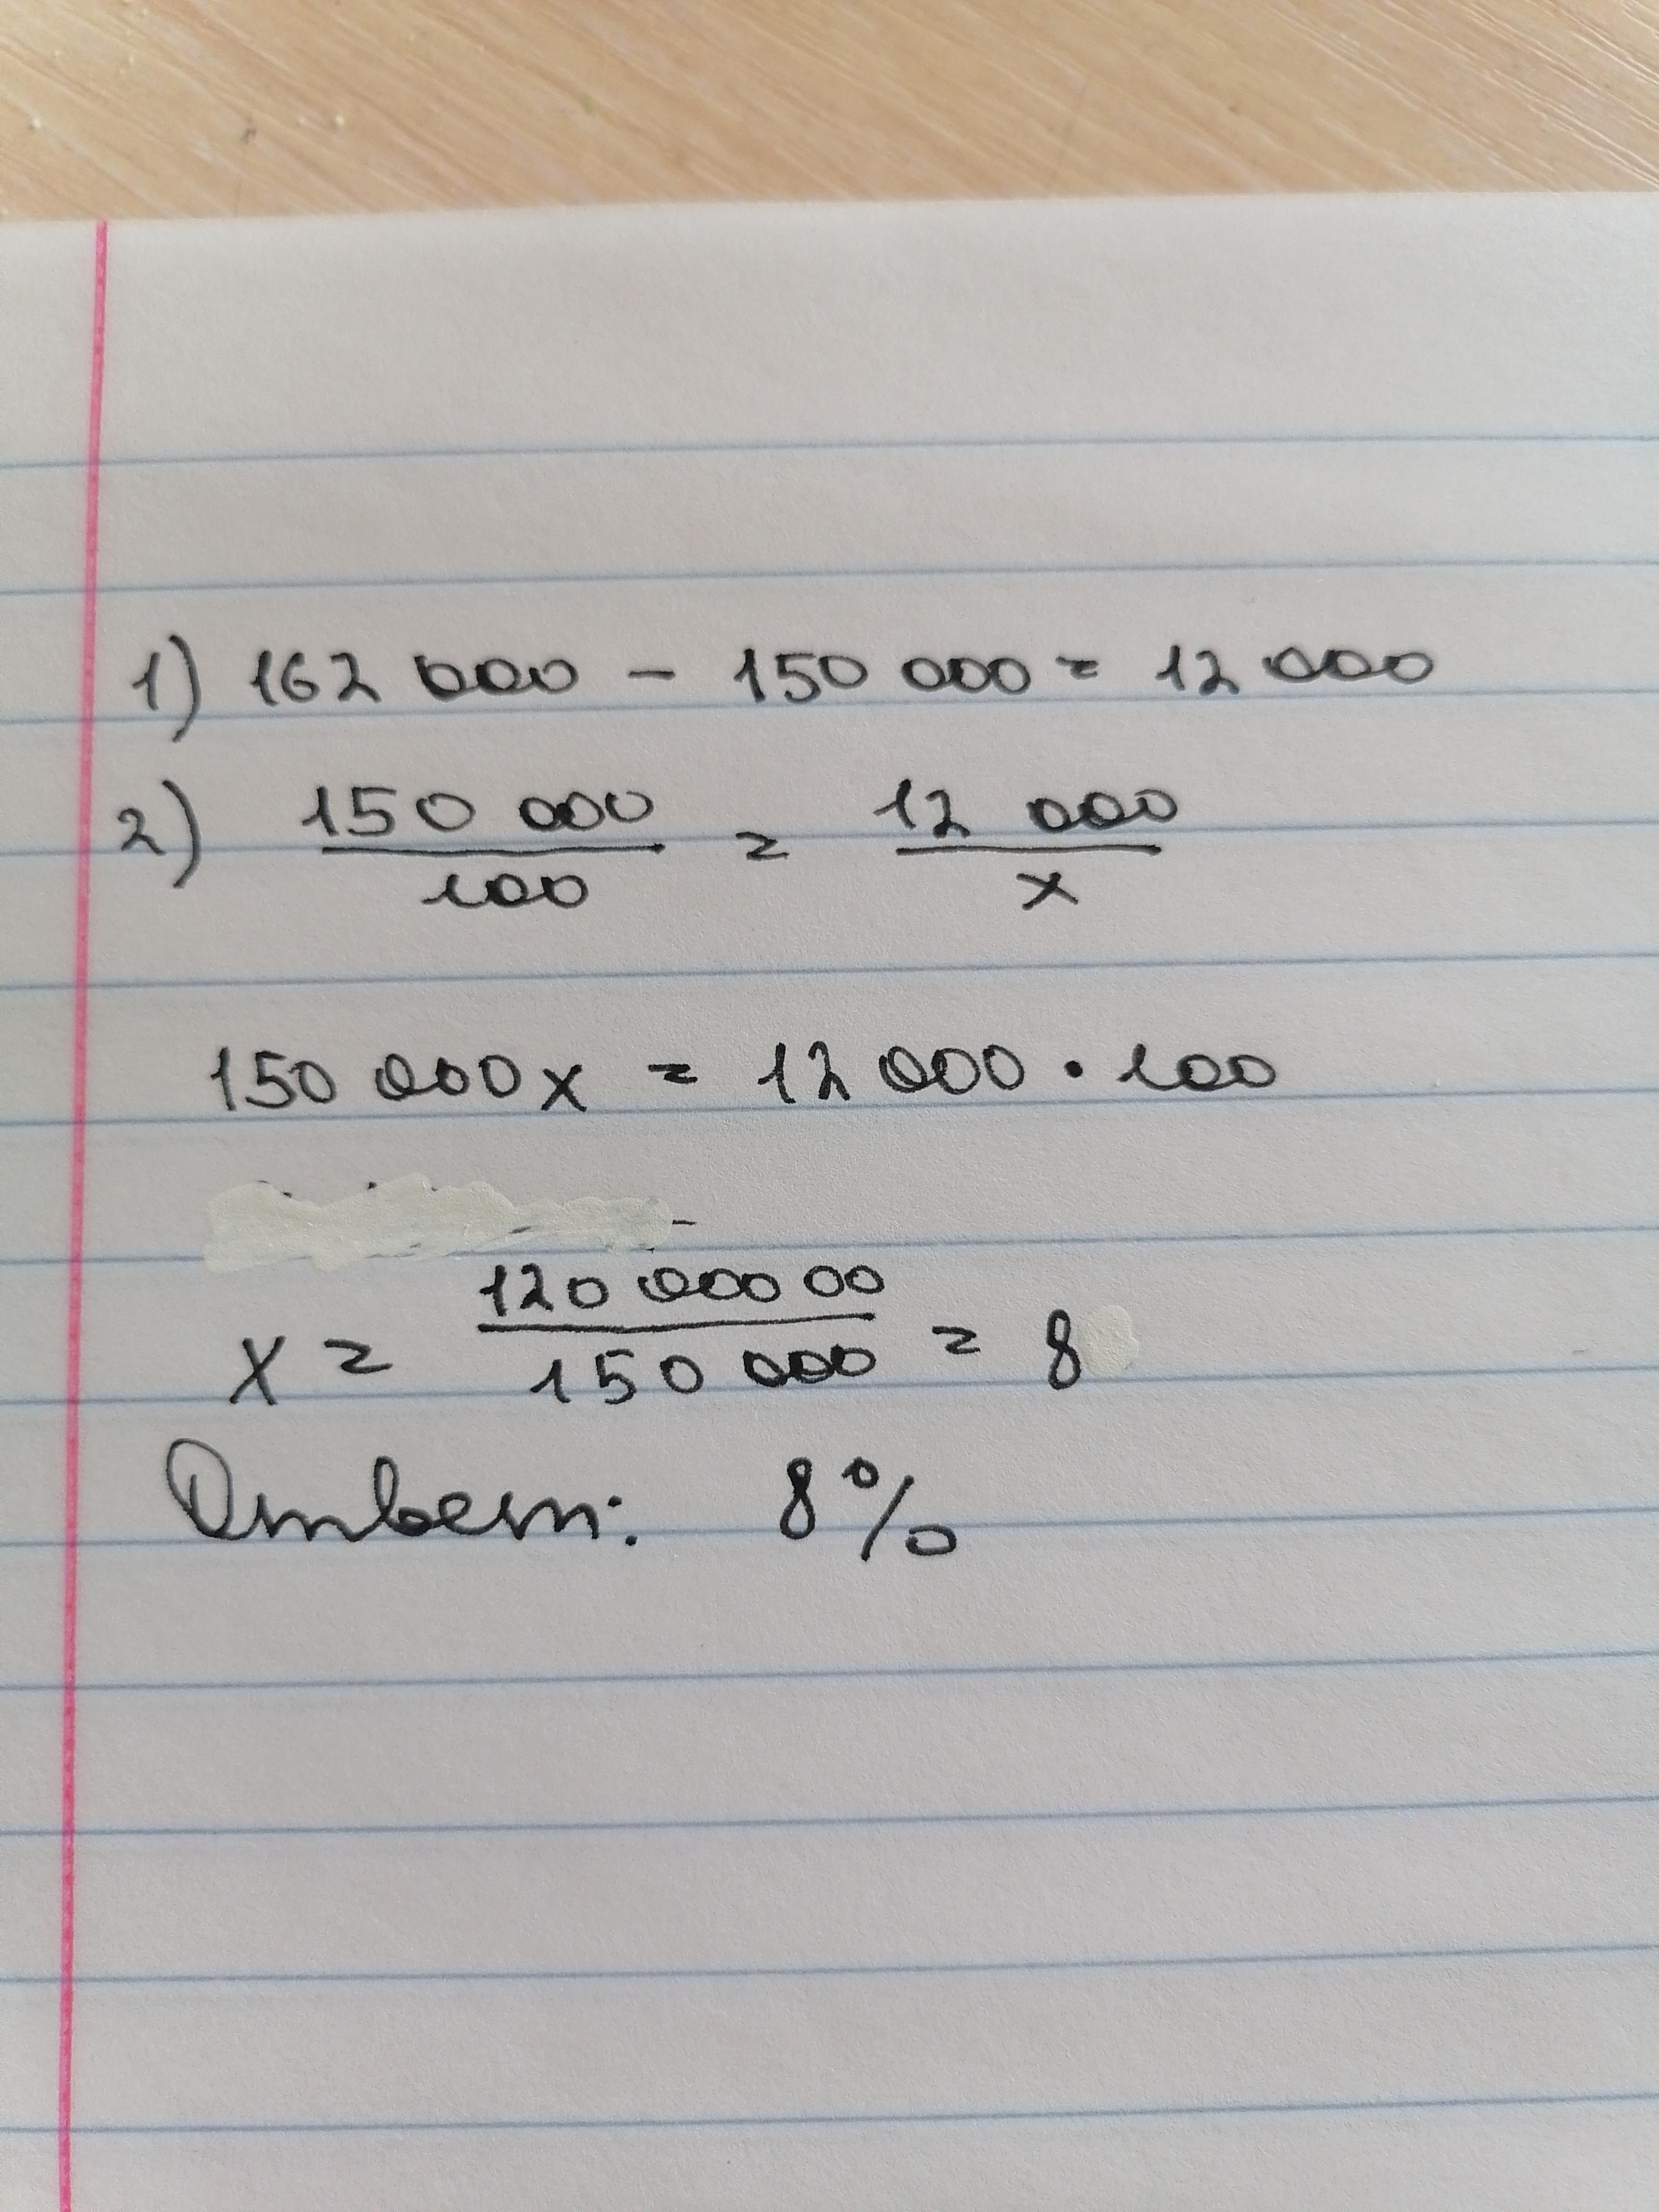 1) 162 000 - 150 000 = 12 000
2) 150 000 / 100 = 12 000 / x
150 000x = 12 000 • 100
x = 120 000 00 / 150 000 = 8
Ответ: 8%